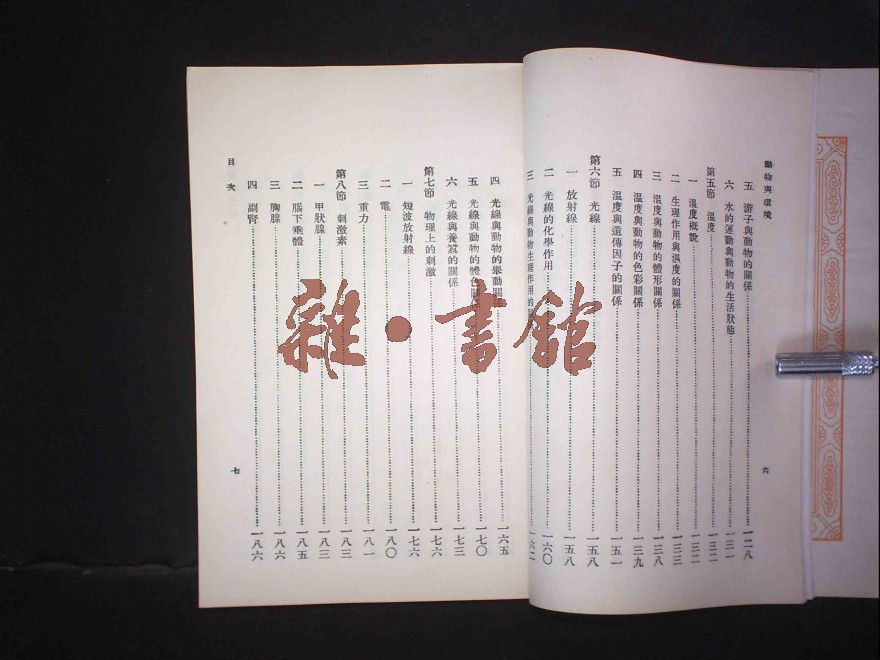 動物與環境
五　游子與動物的關係……一二八
六　水的運動與動物的生活狀態……一三一
第五節　溫度……一三二
一　溫度概說……一三二
二　生理作用與溫度的關係……一三三
三　溫度與動物的體形關係……一三八
四　溫度與動物的色彩關係……一三九
五　溫度與遺傳因子的關係……一五一
第六節　光線……一五八
一　放射線……一五八
二　光線的化學作用……一六〇
三　光線與動物生理作用的
六
四　光線與動物的舉動關係……一六五
五　光線與動物的體色關係……一七〇
六　光線與養蠶的關係……一七三
第七節　物理上的刺激……一七六
一　短波放射線……一七六
二　電……一八〇
三　重力……一八一
第八節　刺激素……一八三
一　甲狀腺……一八三
二　腦下垂體……一八五
三　胸腺……一八六
四　副腎……一八六
目次
七
雜·書館